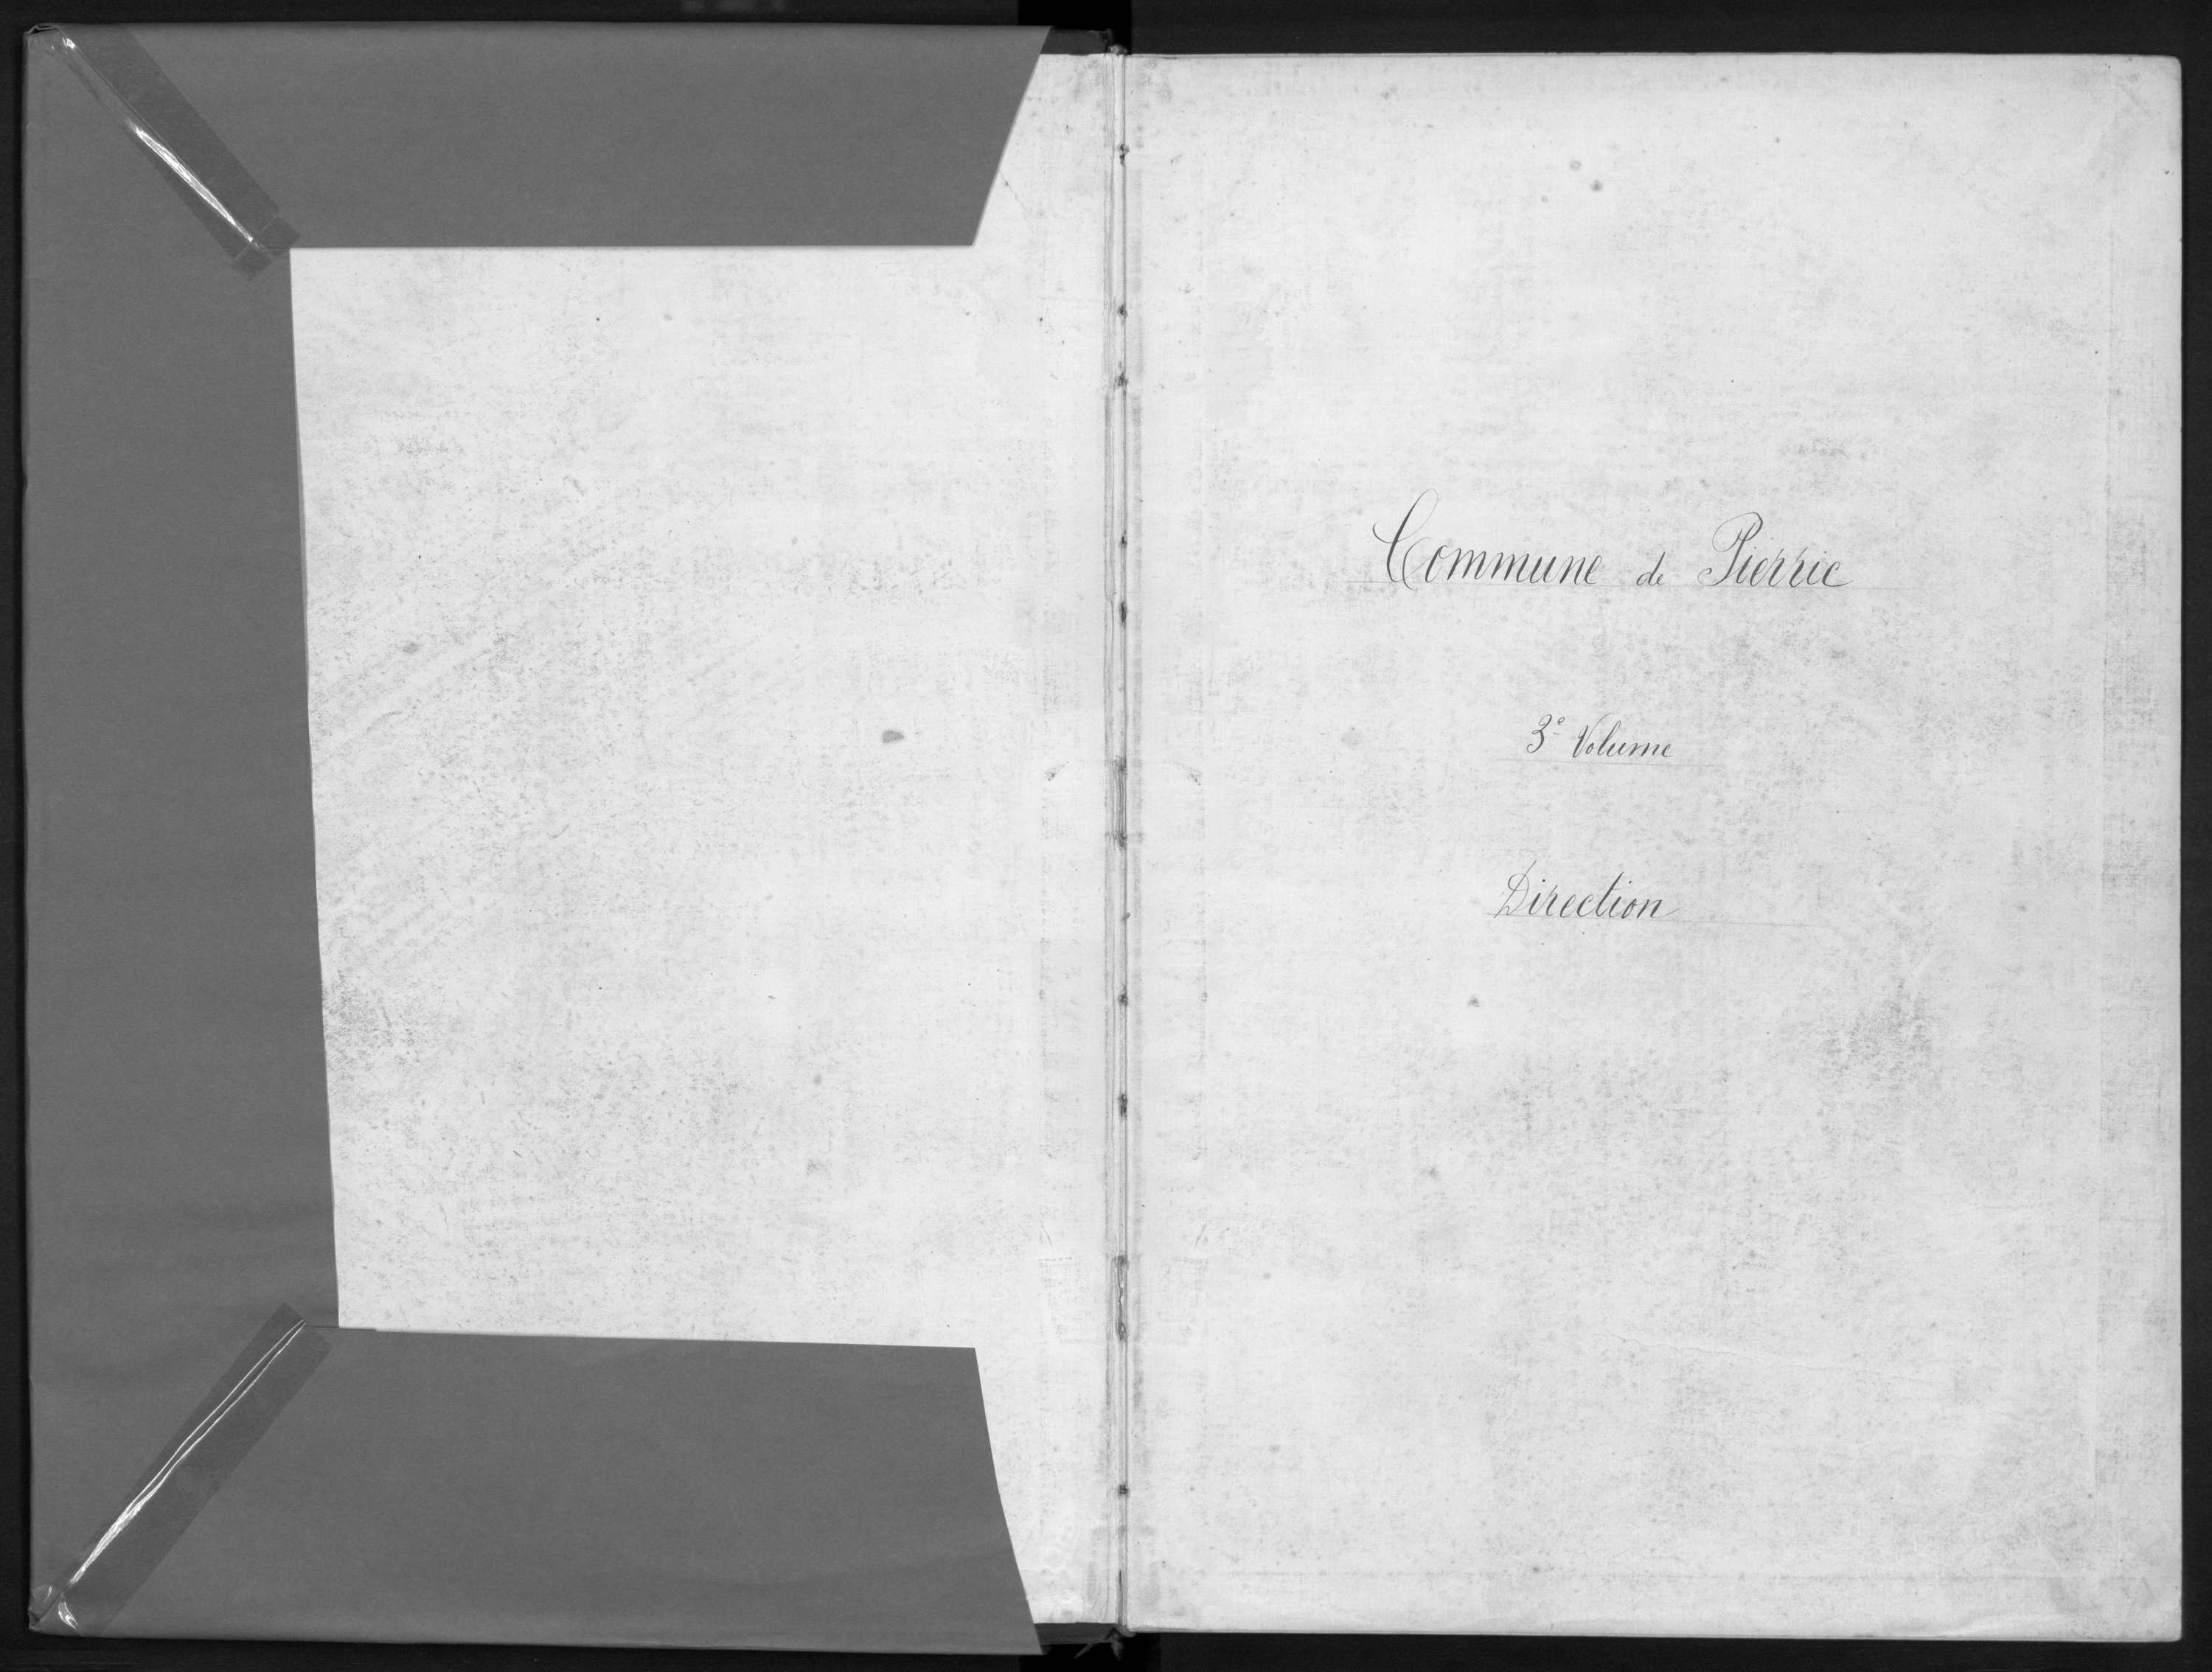 Commune de Pierric
3e Volume
Direction